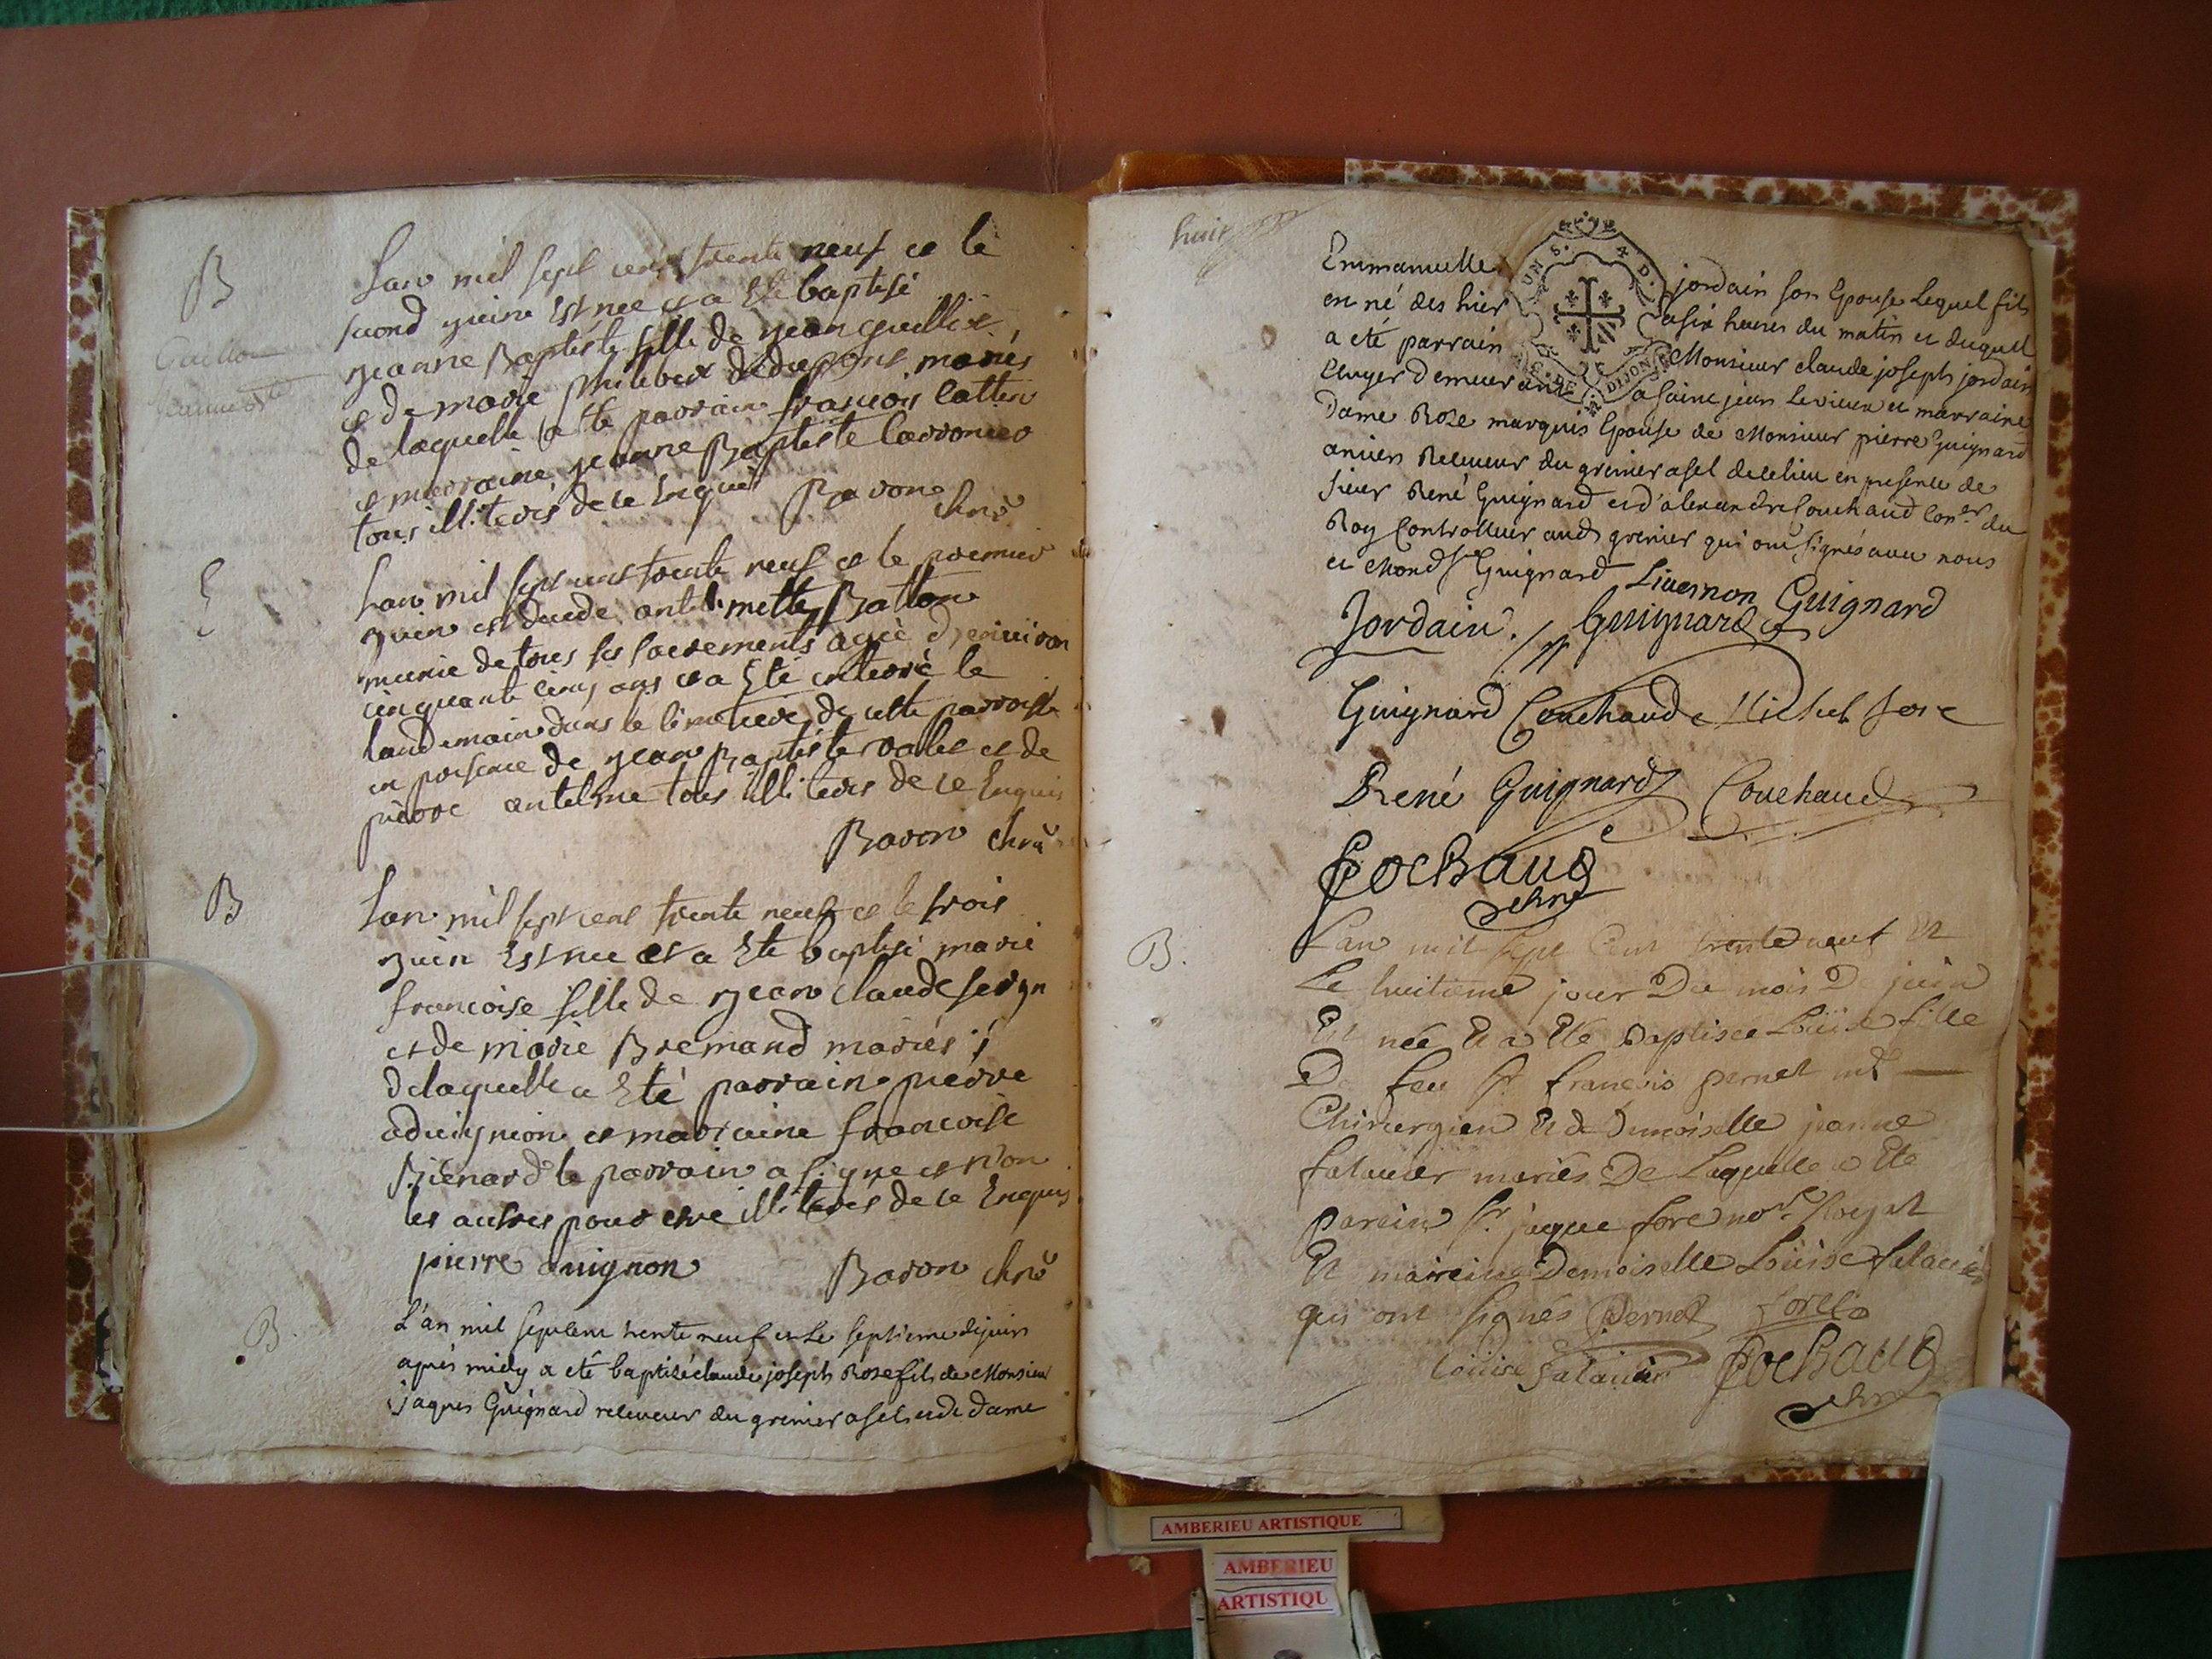 B
Lan mil sept cent trente neuf et le
second juin est nee et a ete baptisé
jeanne Baptiste fille de jean
et de marie philibert mariés
de laquelle a ete parrain francois
et marraine jeanne Baptiste
tous illiteres de ce Enquis Baron chne
Lan mil sept cent trente neuf et le premier
juin est decede
munie de tous ses sacrements agée d'environ
cinquante cinq ans et a Eté enterré le
landemain dans le cimetiere de cette parroisse
en presence de jean Baptiste et de
pierre antelme tous illiteres de ce Enquis
Baron chne
B
Lan mil sept cent trente neuf et le trois
juin Est nee et a Ete baptisé marie
francoise fille de jean claude
et de marie Bremand mariés
de laquelle a Eté parrain pierre
et marraine francoise
le parrain a signe et non
les autres pour etre illiteres de ce Enquis
pierre auignon Baron chne
B.
L'an mil sept cent trente neuf et Le septieme de juin
apres midy a eté baptisé claude joseph Rose fils de Monsieur
jaques Guignard receveur du grenier a sel et de dame
huit
Emmanuelle jordain son Epouse Lequel fils
en né des hier a six heures du matin et duquel
a eté parrain Monsieur claude joseph jordain
Ecuyer demeurant a saint jean Levieux et marraine
UN S. 4 D.
DIJON
Dame Roze marquis Epouse de Monsieur pierre Guignard
ancien Receveur du grenier a sel de ce lieu en presence de
sieur René Guignard et d'alexandre Couchaud Coner du
Roy Controlleur aud grenier qui ont signés avec nous
et Mond Sr Guignard Liuernon Guignard
Jordain. Guignard
Guignard Couchaud
René Guignard Couchaud
Cochaud
chne
B.
Lan mil sept Cent trente neuf Et
Le huitieme jour Du mois De juin
Est née Et a Eté Baptisée Loüise fille
De feu Sr francois pernet mt
Chirurgien Et de Demoiselle jeanne
falauier mariés De Laquelle a Eté
parein Sr jaque
Et maireine Demoiselle Loüise falauier
qui ont signés Pernet
loüise falauier Cochaud
chne
AMBERIEU ARTISTIQUE
AMBERIEU
ARTISTIQU